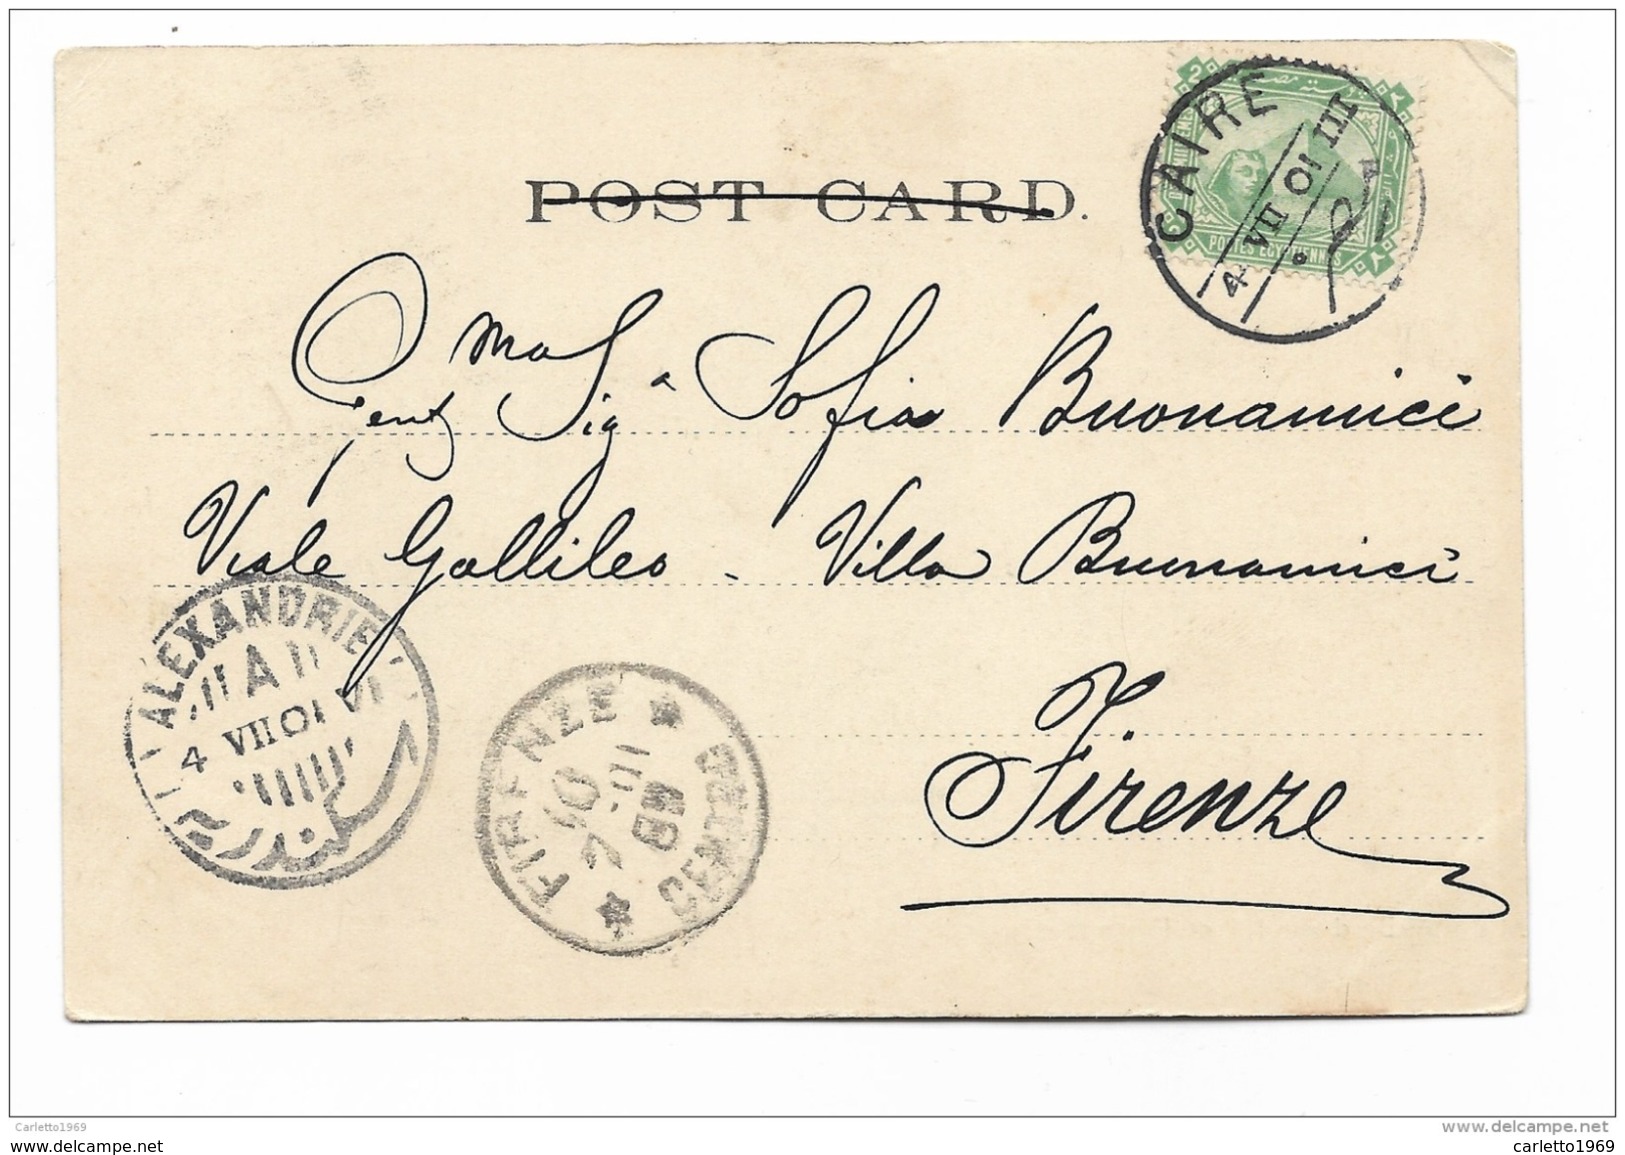 POST CARD.
CAIRE
4 VII 01 III
2
2 MILLIEMES
POSTES EGYPTIENNES
Gent ma Sig a Sofia Buonamici
Viale Gallileo - Villa Buonamici
Firenze
ALEXANDRIE
A
4 VII 01 VI
FIRENZE
10
7
Carletto1969
www.delcampe.net
www.delcampe.net
carletto1969